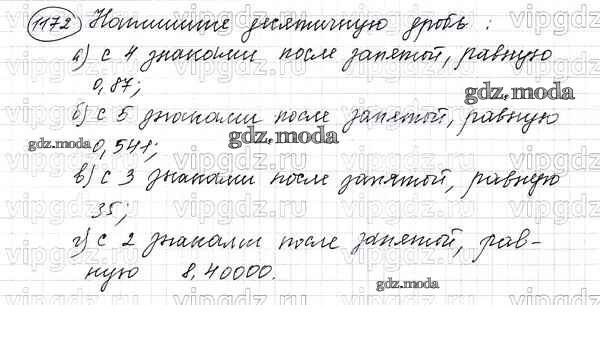 1172 Напишите десятичную дробь :
а) с 4 знаками после запятой, равную
0,87;
б) с 5 знаками после запятой, равную
0,541;
в) с 3 знаками после запятой, равную
35;
г) с 2 знаками после запятой, рав-
ную 8,40000.
gdz.moda
gdz.moda
gdz.moda
gdz.moda
vipgdz.ru